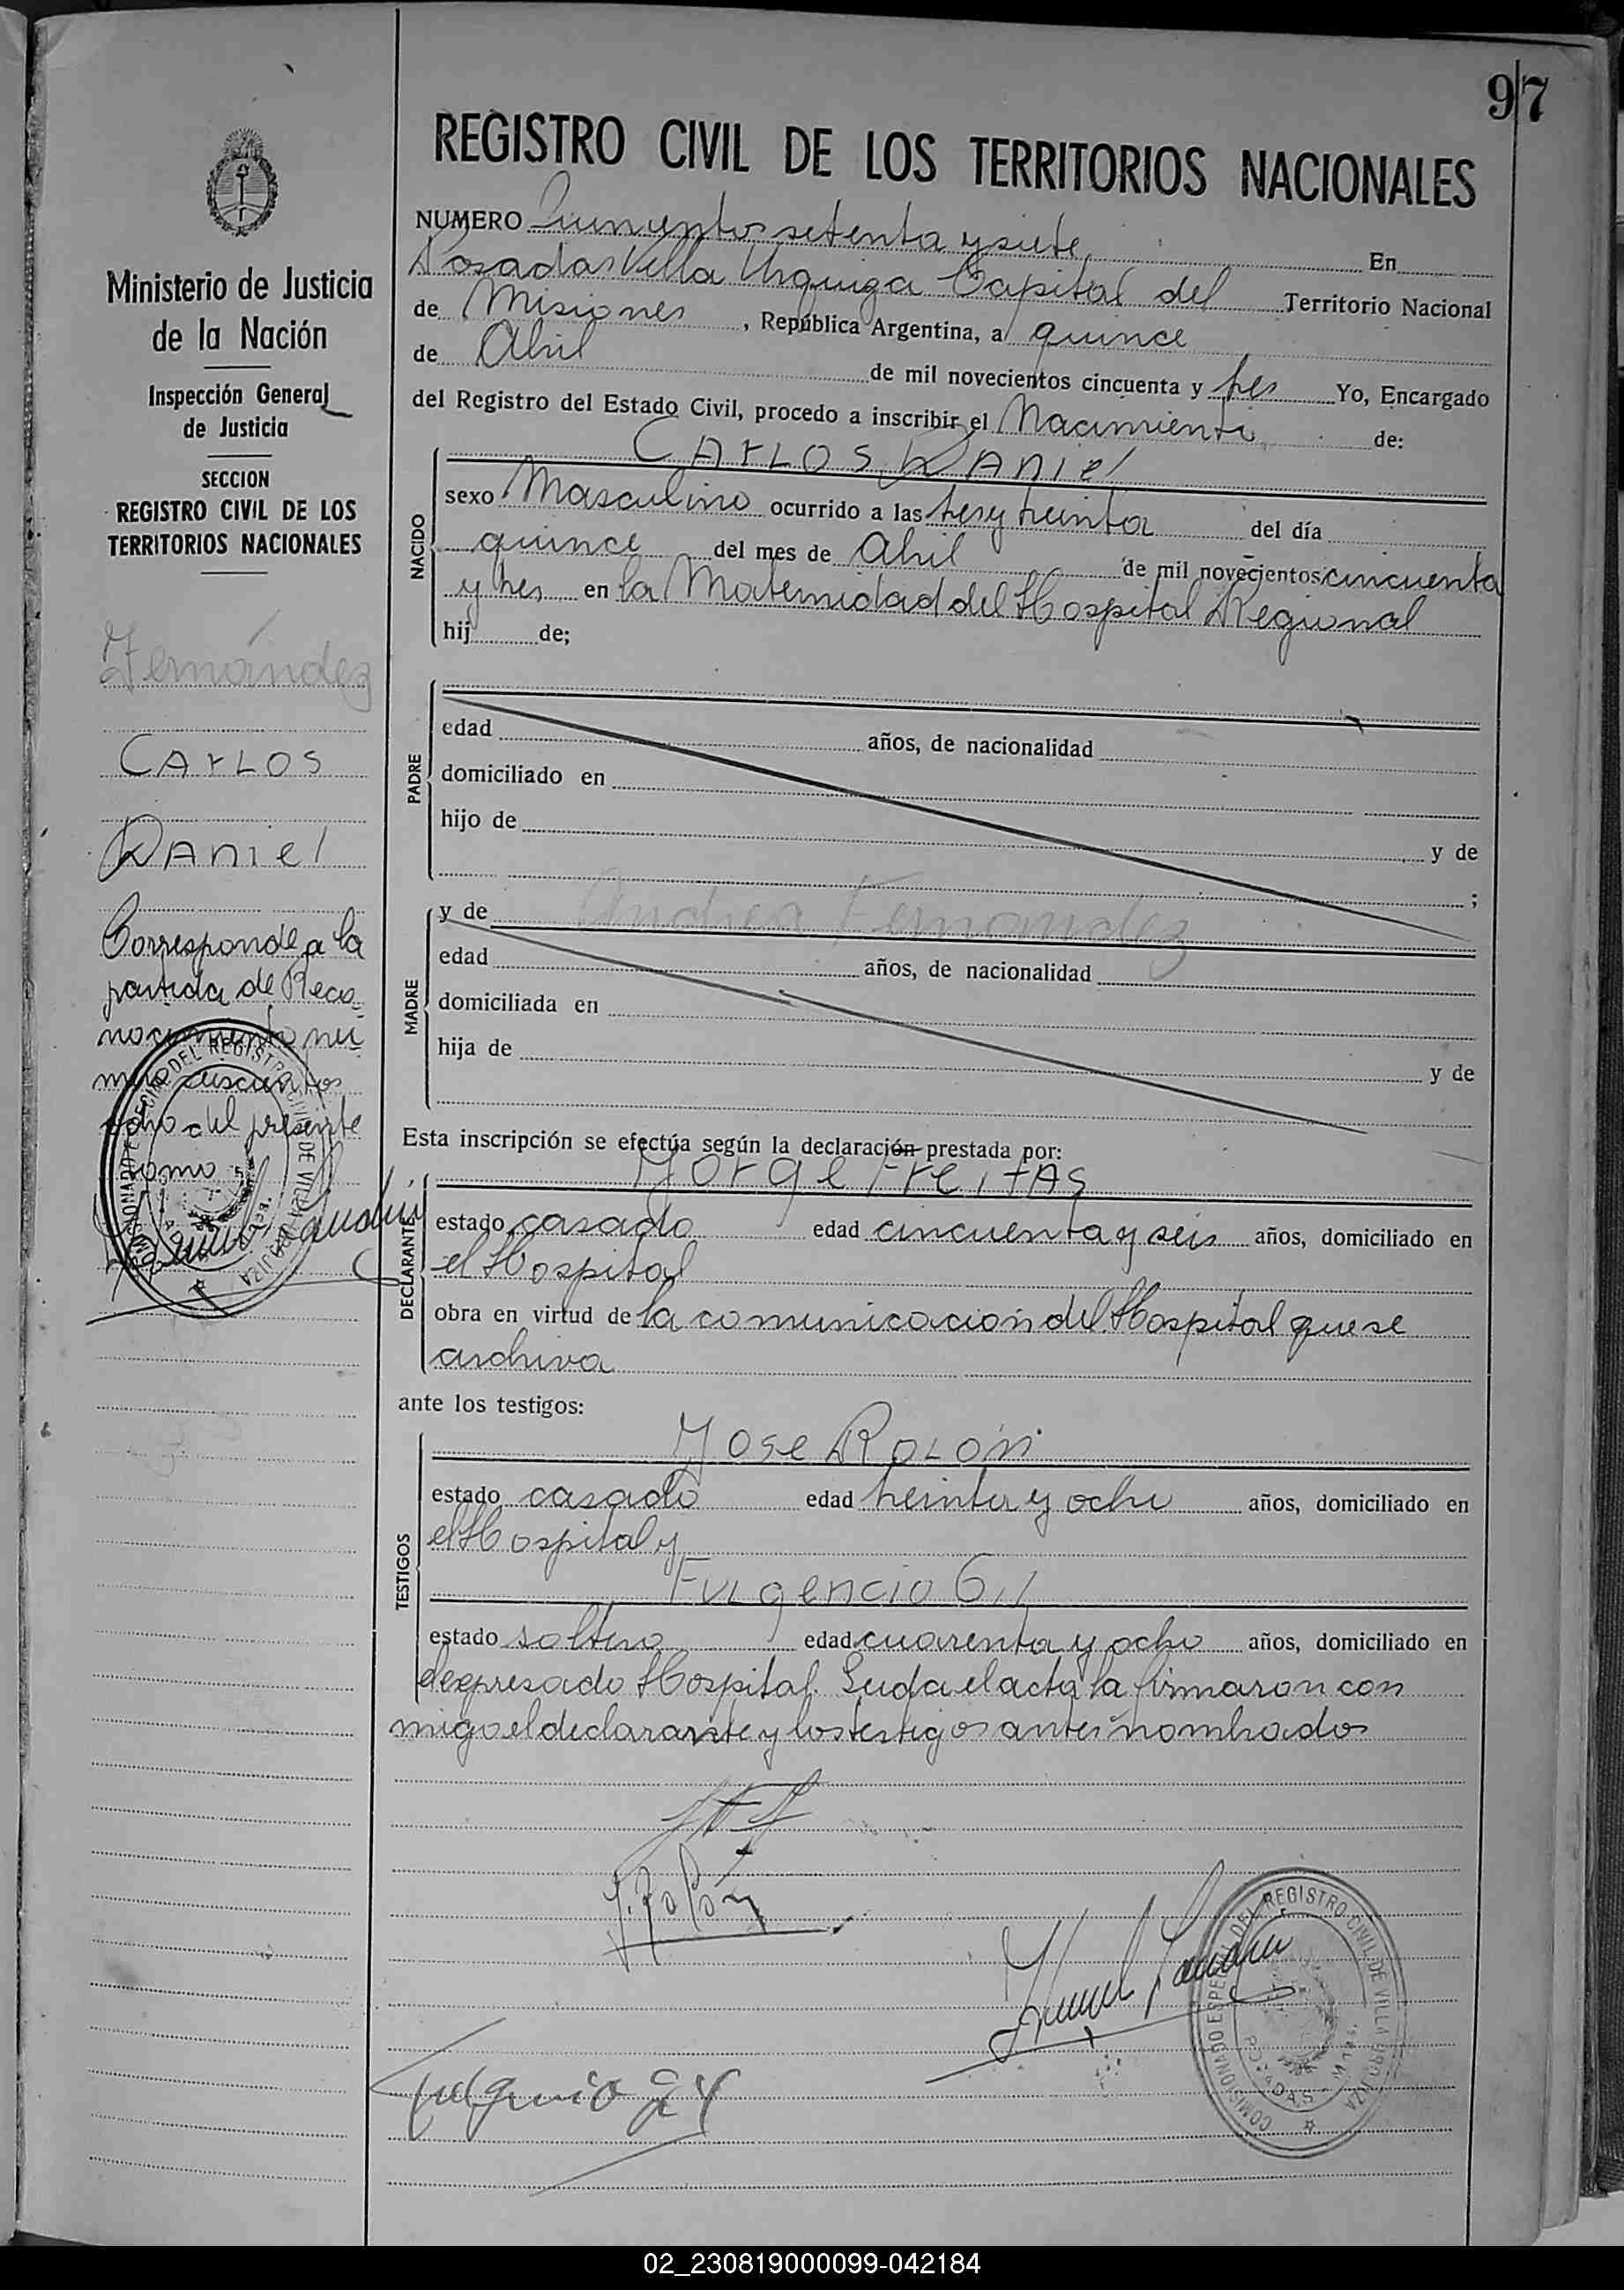 97
REGISTRO CIVIL DE LOS TERRITORIOS NACIONALES
NUMERO Quinientos setenta y siete En
Posadas Villa Urquiza Capital del Territorio Nacional
de Misiones, República Argentina, a quince
de Abril de mil novecientos cincuenta y tres Yo, Encargado
del Registro del Estado Civil, procedo a inscribir el Nacimiento de:
CArLOS DAniel
NACIDO
sexo Masculino ocurrido a las tres y treinta del día
quince del mes de Abril de mil novecientos cincuenta
y tres en la Maternidad del Hospital Regional
hij de;
PADRE
edad años, de nacionalidad
domiciliado en
hijo de y de
;
MADRE
y de Andrea Fernandez
edad años, de nacionalidad
domiciliada en
hija de y de
Esta inscripción se efectúa según la declaración prestada por:
Jorge FreitAS
DECLARANTE
estado casado edad cincuenta y seis años, domiciliado en
el Hospital
obra en virtud de la comunicación del Hospital que se
archiva
ante los testigos:
Jose ROLÓn
TESTIGOS
estado casado edad treinta y ocho años, domiciliado en
el Hospital y
FuLgencio Gil
estado soltero edad cuarenta y ocho años, domiciliado en
el expresado Hospital. Leida el acta la firmaron con
migo el declarante y los testigos antes nombrados
J. Rolón
Fulgencio Gil
COMISIONADO ESPECIAL DEL REGISTRO CIVIL DE VILLA URQUIZA
POSADAS - Mnes.
Ministerio de Justicia
de la Nación
Inspección General
de Justicia
SECCION
REGISTRO CIVIL DE LOS
TERRITORIOS NACIONALES
Fernández
CArLOS
DAniel
Corresponde a la
partida de Reco-
nocimiento nú-
mero doscientos
ocho del presente
tomo
COMISIONADO ESPECIAL DEL REGISTRO CIVIL DE VILLA URQUIZA
02_230819000099-042184